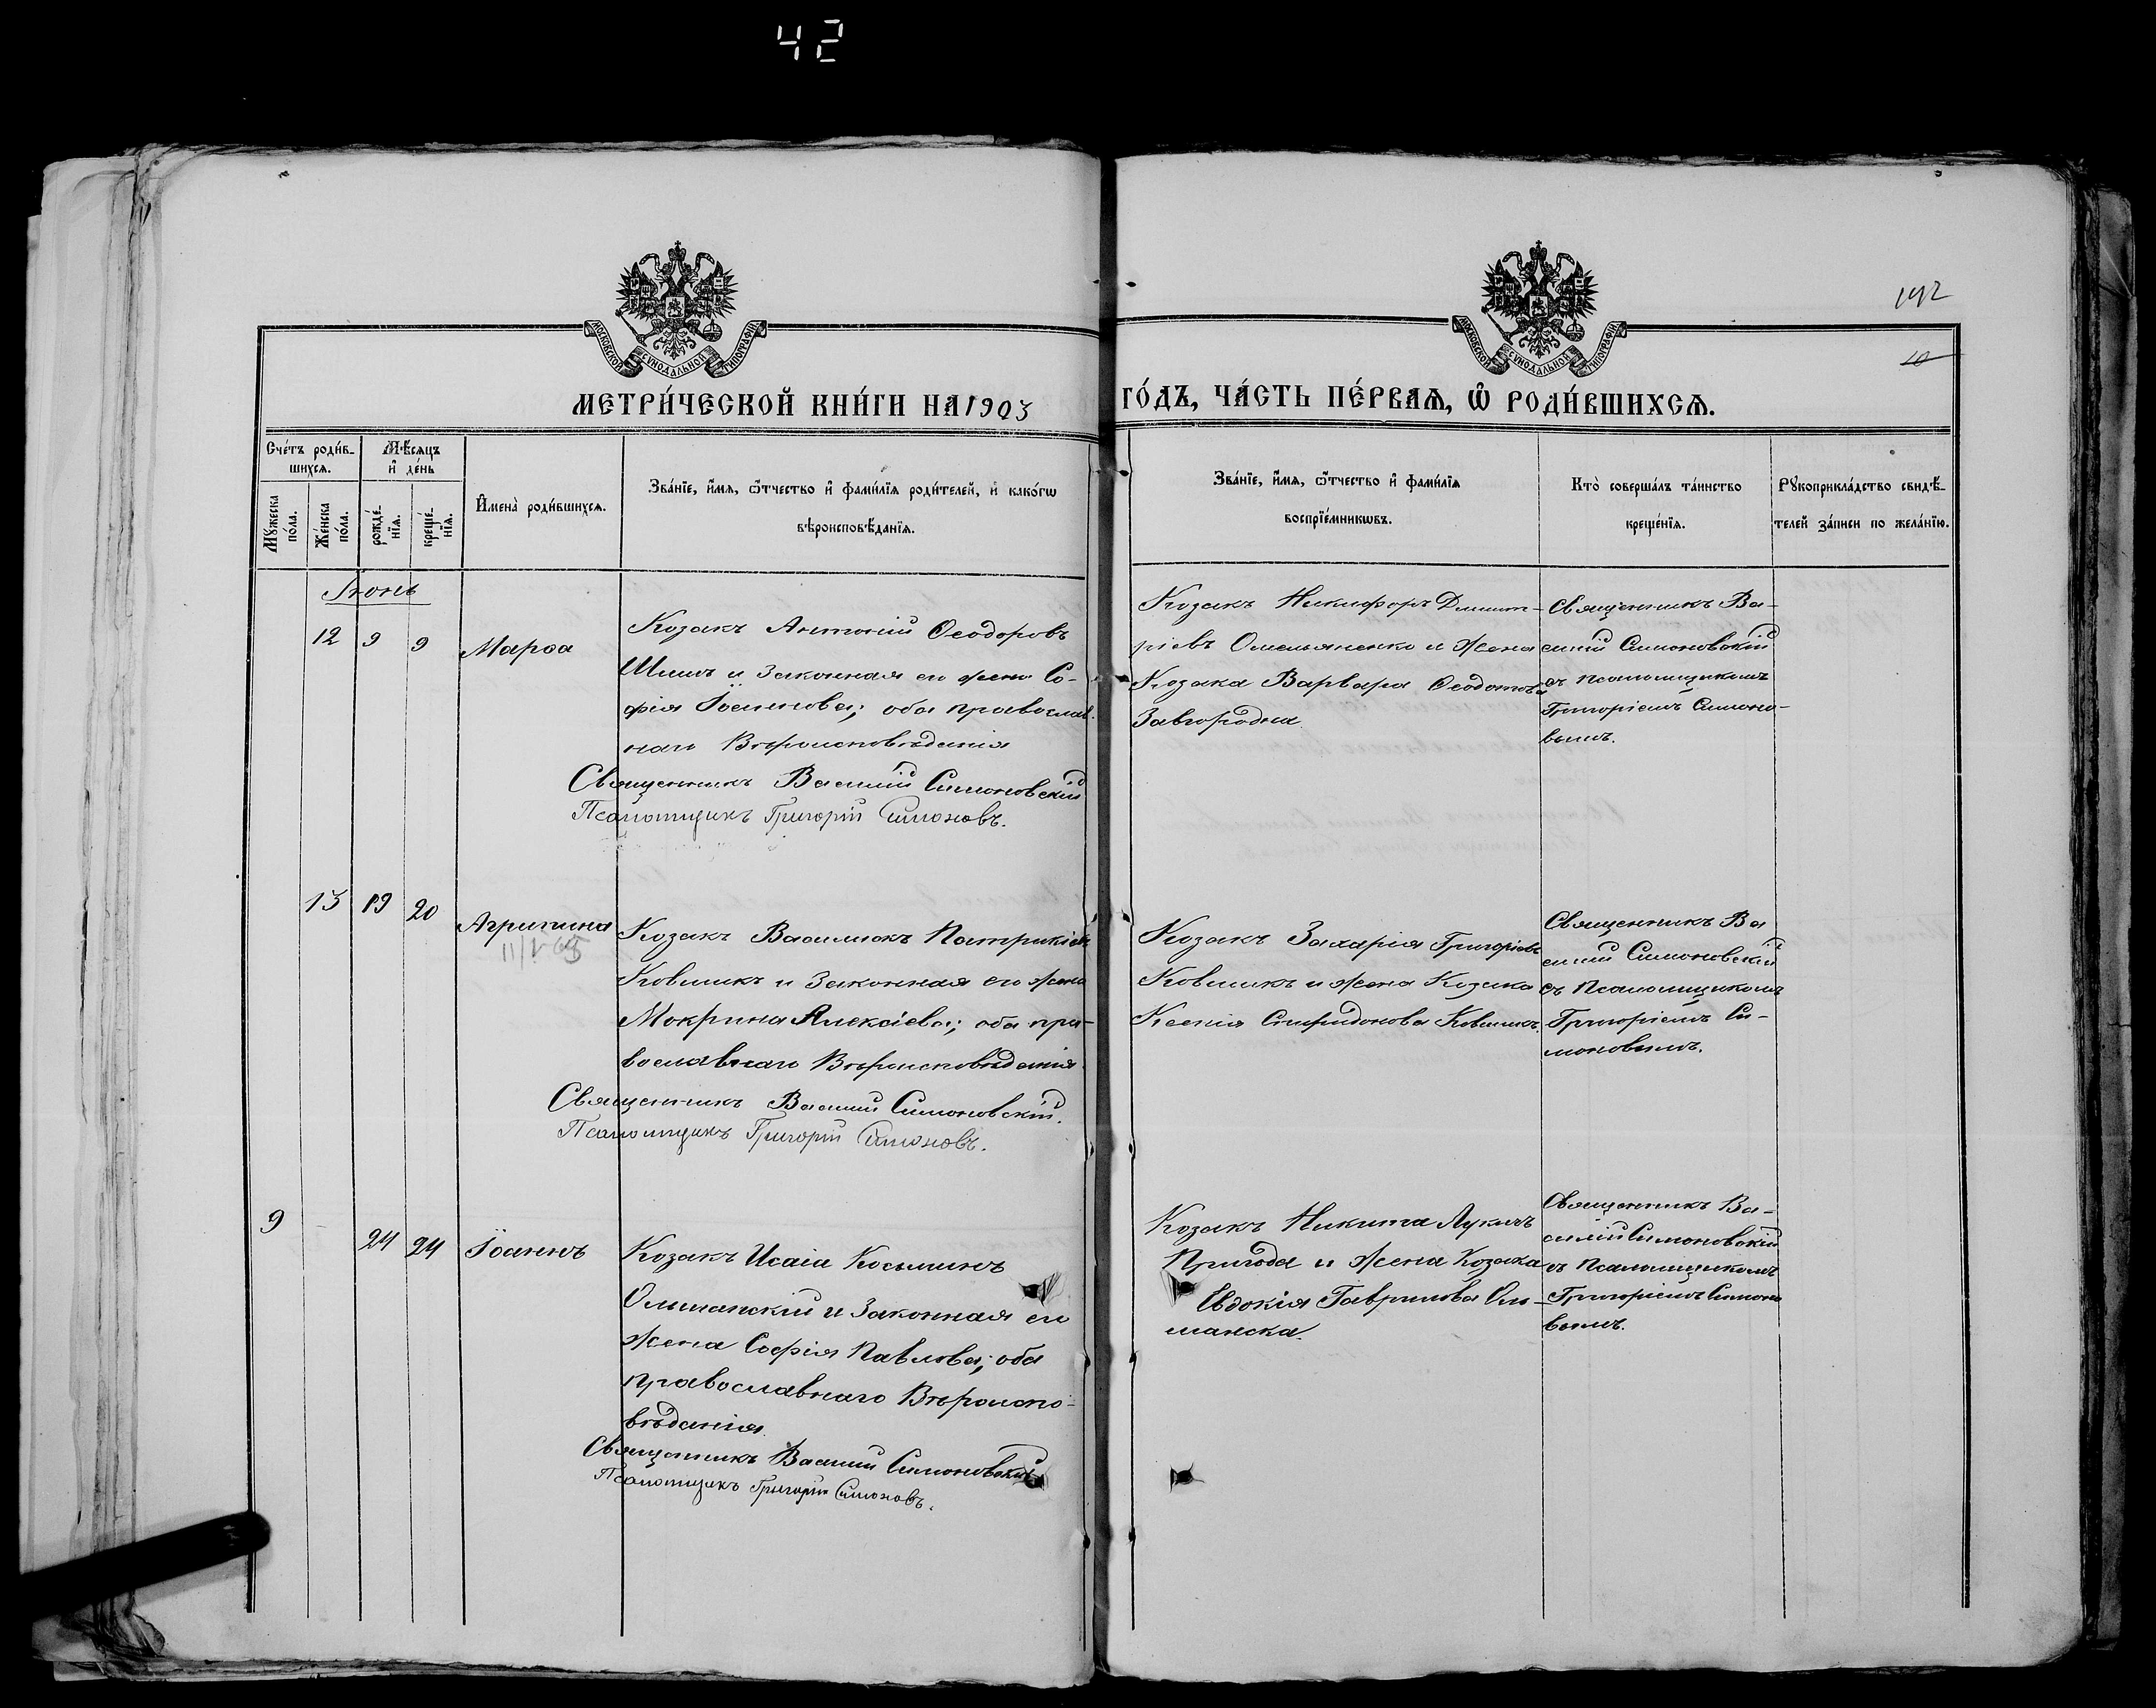 42
192
10
МОСКОВСКОЙ СѴНОДАЛЬНОЙ ТИПОГРАФІИ
МОСКОВСКОЙ СѴНОДАЛЬНОЙ ТИПОГРАФІИ
МЕТРИ́ЧЕСКОЙ КНИ́ГИ НА 1903
ГО́ДЪ, ЧА́СТЬ ПЕ́РВАѦ, Ѡ҆ РОДИ́ВШИХСѦ.
Сче́тъ роди́в-
шихсѧ.
Мѣ́сяцъ
и҆ де́нь
Мꙋ́жеска
по́ла.
Же́нска
по́ла.
рожде́-
нїѧ.
креще́-
нїѧ.
И҆мена̀ роди́вшихсѧ.
Зва́нїе, и҆́мѧ, ѻ҆́тчество и҆ фами́лїѧ роди́телей, и҆ како́гѡ
вѣроисповѣ́данїѧ.
Зва́нїе, и҆́мѧ, ѻ҆́тчество и҆ фами́лїѧ
воспрїе́мникѡвъ.
Кто̀ соверша́лъ та́инство
креще́нїѧ.
Рꙋкоприкла́дство свидѣ́-
телей за́писи по жела́нїю.
Іюнь
12 9 9 Марѳа
Козакъ Антоній Ѳеодоровъ
Шишъ и законная его жена Со-
фія Іосифова; оба православ-
наго Вѣроисповѣданія
Священникъ Василій Симоновскій
Псаломщикъ Григорій Симоновъ.
Козакъ Никифоръ Димит-
ріевъ Омельяненко и жена
Козака Варвара Ѳеодотова
Завгородна
Священникъ Ва-
силій Симоновскій
съ псаломщикомъ
Григоріемъ Симоно-
вымъ.
13 19 20 Агрипина
Козакъ Василискъ Патрикіевъ
Ковшикъ и законная его жена
Мокрина Алексіева; оба пра-
вославнаго Вѣроисповѣданія
Священникъ Василій Симоновскій.
Псаломщикъ Григорій Симоновъ.
Козакъ Захарія Григоріевъ
Ковшикъ и жена Козака
Ксенія Спиридонова Ковшикъ.
Священникъ Ва
силій Симоновскій
съ Псаломщикомъ
Григоріемъ Си-
моновымъ.
9 24 24 Іоаннъ
Козакъ Исаія Косьминъ
Ольшанскій и Законная его
жена Софія Павлова; оба
православнаго Вѣроиспо-
вѣданія.
Священникъ Василій Симоновскій
Псаломщикъ Григорій Симоновъ.
Козакъ Никита Лукинъ
Пригода и жена Козака
Евдокія Гаврилова Оль-
шанска.
Священникъ Ва-
силій Симоновскій
съ Псаломщикомъ
Григоріемъ Симоно
вымъ.